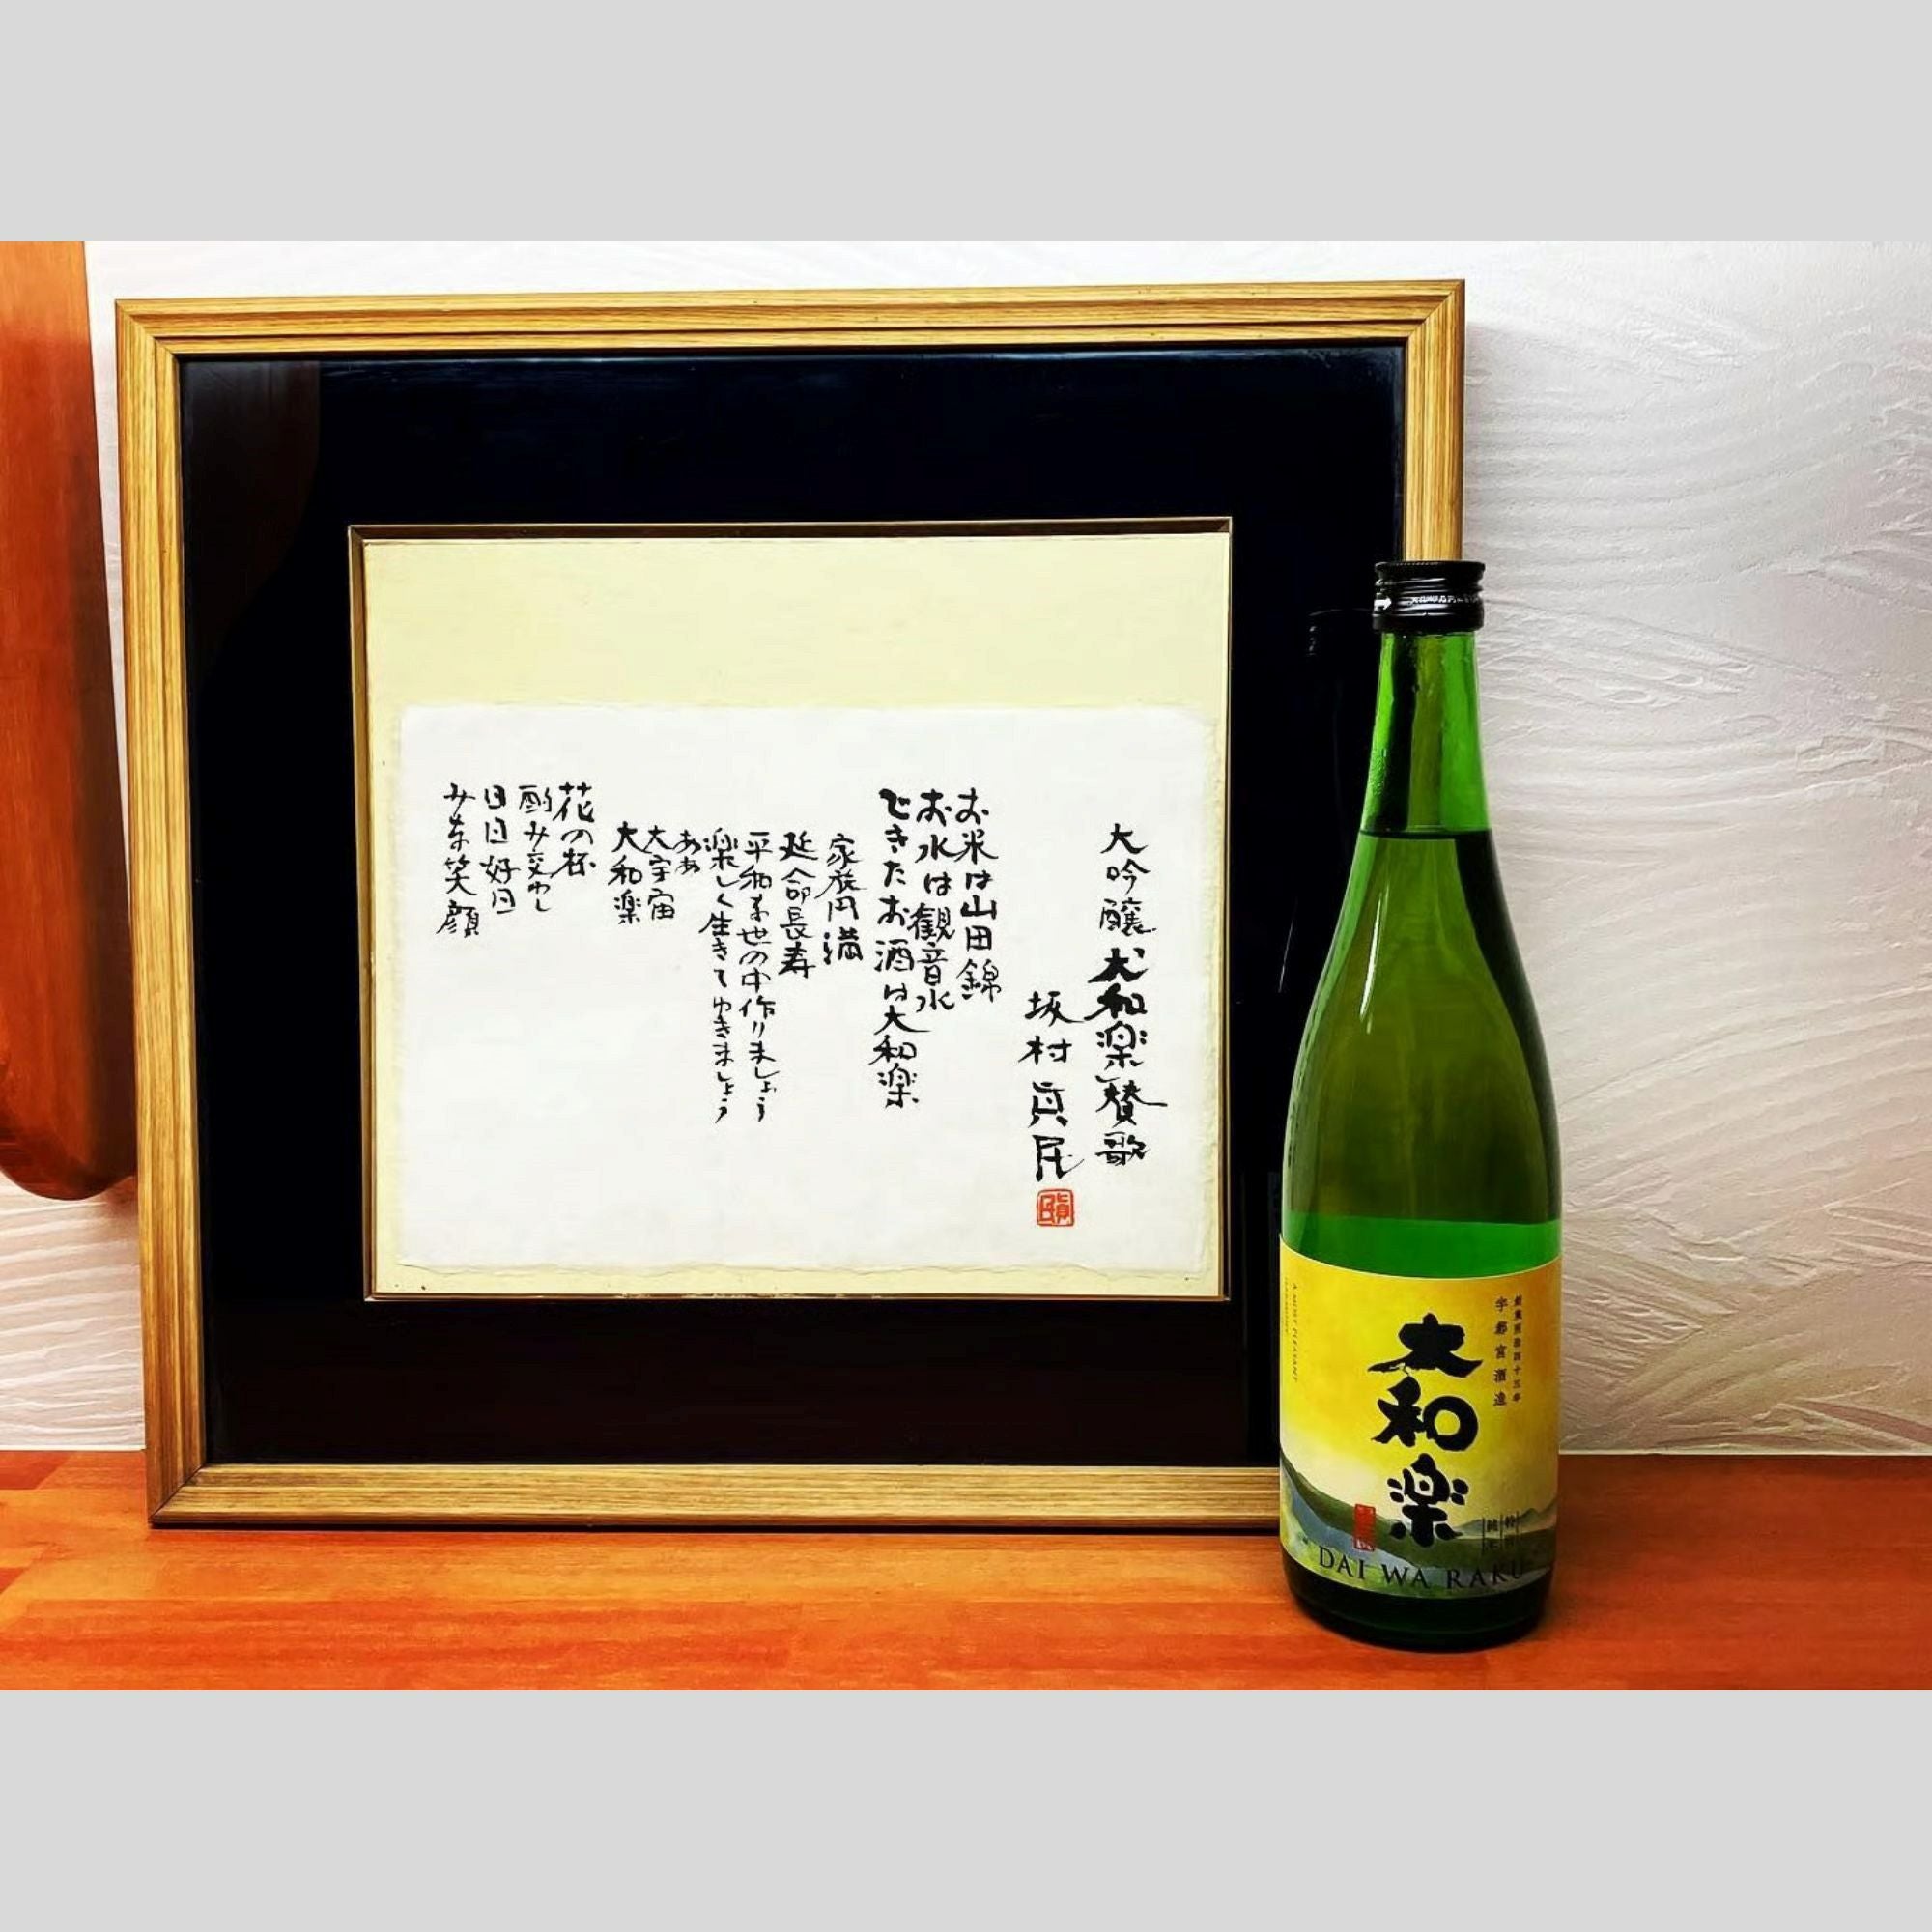 大吟醸大和楽賛歌
坂村真民
お米は山田錦
お水は観音水
できたお酒は大和楽
家族円満
延命長寿
平和な世の中作りましょう
楽しく生きてゆきましょう
ああ
大宇宙
大和楽
花の杯
酌み交わし
日日好日
みな笑顔
宇都宮酒造
大和楽
DAI WA RAKU
A MOST PLEASANT